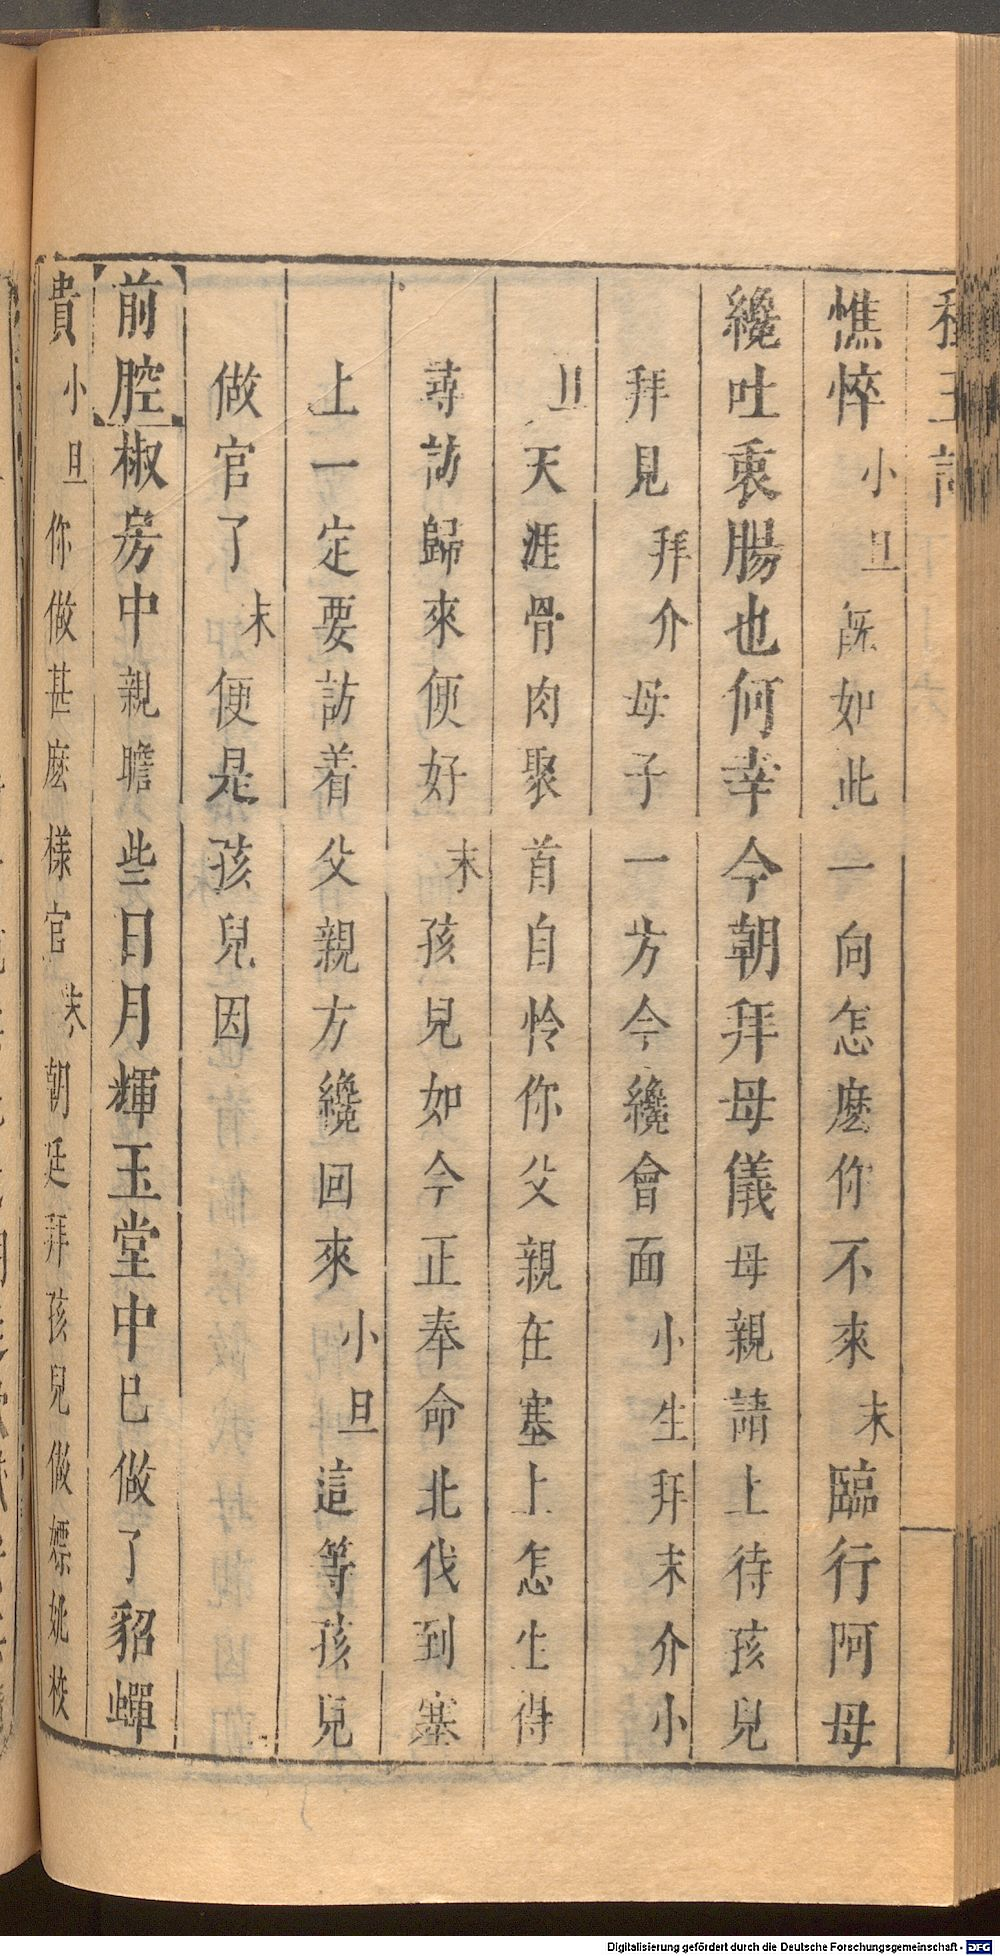 種玉記
憔悴小旦旣如此一向怎麽你不來末臨行阿母
纔吐衷腸也何幸今朝拜母儀母親請上待孩兒
拜見拜介母子一方今纔會面小生拜末介小
旦天涯骨肉聚首自怜你父親在塞上怎生得
尋訪歸來便好末孩兒如今正奉命北伐到塞
上一定要訪着父親方纔回來小旦這等孩兒
做官了末便是孩兒因
前腔椒房中親瞻些日月輝玉堂中已做了貂蟬
貴小旦你做甚麽樣官末朝廷拜孩兒做嫖姚校
Digitalisierung gefördert durch die Deutsche Forschungsgemeinschaft - DFG